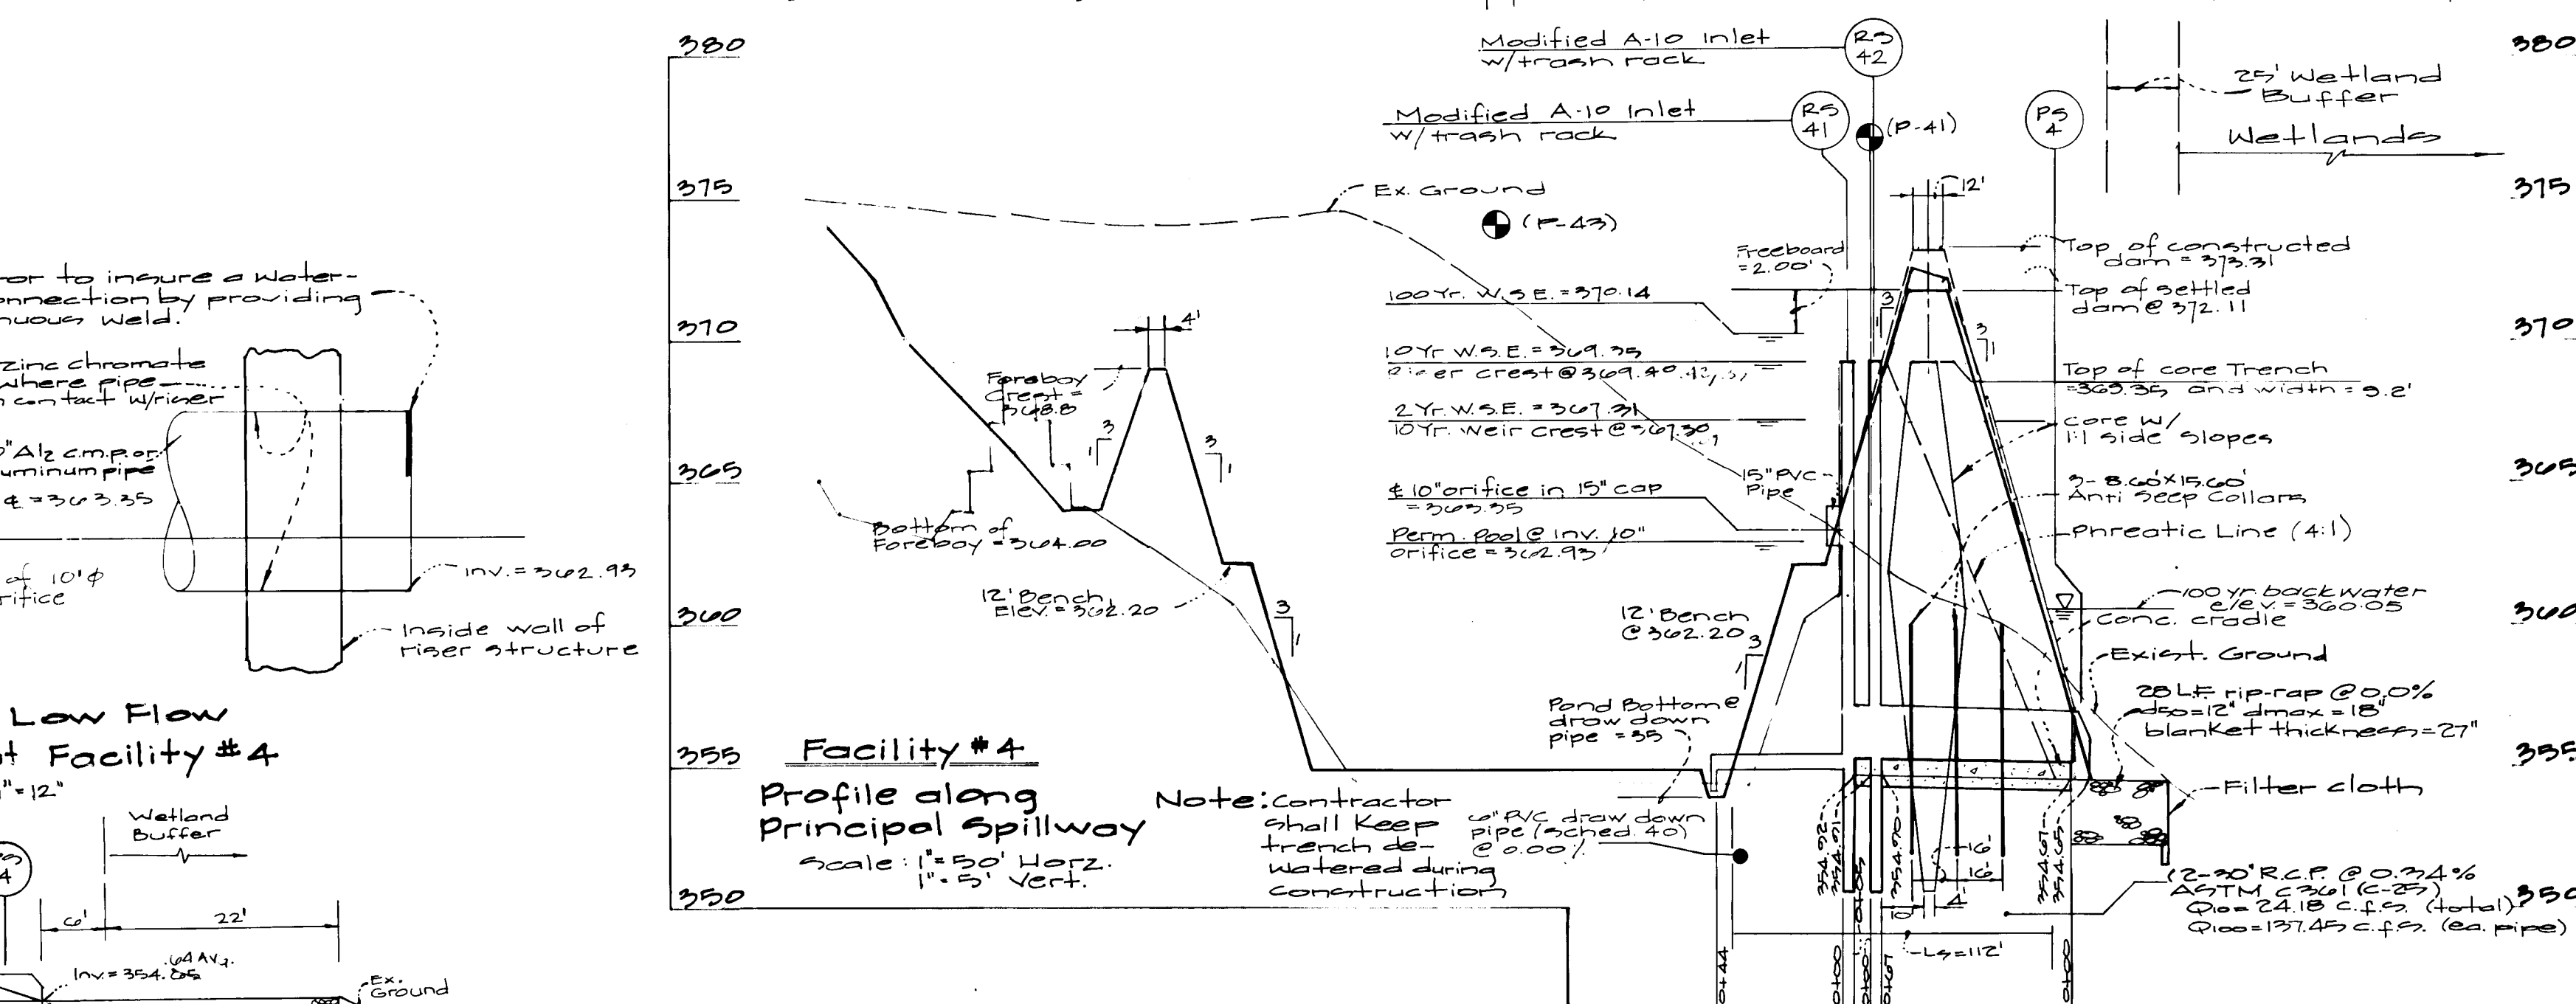 380
375
370
365
360
355
350
or to insure a water-
nnection by providing
nuous weld.
zinc chromate
where pipe
contact w/riser
" Alz c.m.p. or
uminum pipe
¢ = 363.35
of 10"φ
rifice
Inv. = 362.93
Inside wall of
riser structure
Low Flow
Facility #4
"=12"
Wetland
Buffer
4
6'
22'
.64 Av
Inv. = 354.
Ex.
Ground
Forebay
Crest =
368.8
4'
3
1
3
1
Bottom of
Forebay = 364.00
12' Bench
Elev. = 362.20
3
1
Facility #4
Profile along
Principal Spillway
Scale: 1"=50' Horz.
1"=5' Vert.
Note: Contractor
shall keep
trench de-
watered during
construction
Modified A-10 Inlet
w/trash rack
RS
42
Modified A-10 Inlet
w/trash rack
RS
41
(P-41)
PS
4
25' Wetland
Buffer
Wetlands
Ex. Ground
(P-43)
12'
Freeboard
=2.00'
100 Yr. W.S.E. = 370.14
10 Yr W.S.E. = 369.35
Riser crest @ 369.40
2 Yr. W.S.E. = 367.31
10 Yr. Weir Crest @ 367.30
15" PVC
Pipe
¢ 10" orifice in 15" cap
= 363.35
Perm. Pool @ Inv. 10"
orifice = 362.93
12' Bench
@ 362.20
3
1
3
1
3
1
Pond Bottom @
draw down
pipe = 35
6" PVC draw down
pipe (sched. 40)
@ 0.00%
Top of constructed
dam = 373.31
Top of settled
dam @ 372.11
Top of core Trench
=369.35 and width = 9.2'
core w/
1:1 side slopes
3- 8.60'x15.60'
Anti Seep Collars
Phreatic Line (4:1)
100 yr backwater
elev. = 360.05
Conc. cradle
Exist. Ground
28 L.F. rip-rap @ 0.0%
d50=12" dmax = 18"
blanket thickness=27"
Filter cloth
2-30" R.C.P. @ 0.34%
ASTM C361 (C-25)
Q10= 24.18 c.f.s. (total)
Q100=137.45 c.f.s. (ea. pipe)
354.92
354.91
354.90
354.67
354.65
16'
16'
10'
4'
Ls=112'
0+44
0+00
0+05
0+00
0+67
0+00
380
375
370
365
360
355
350